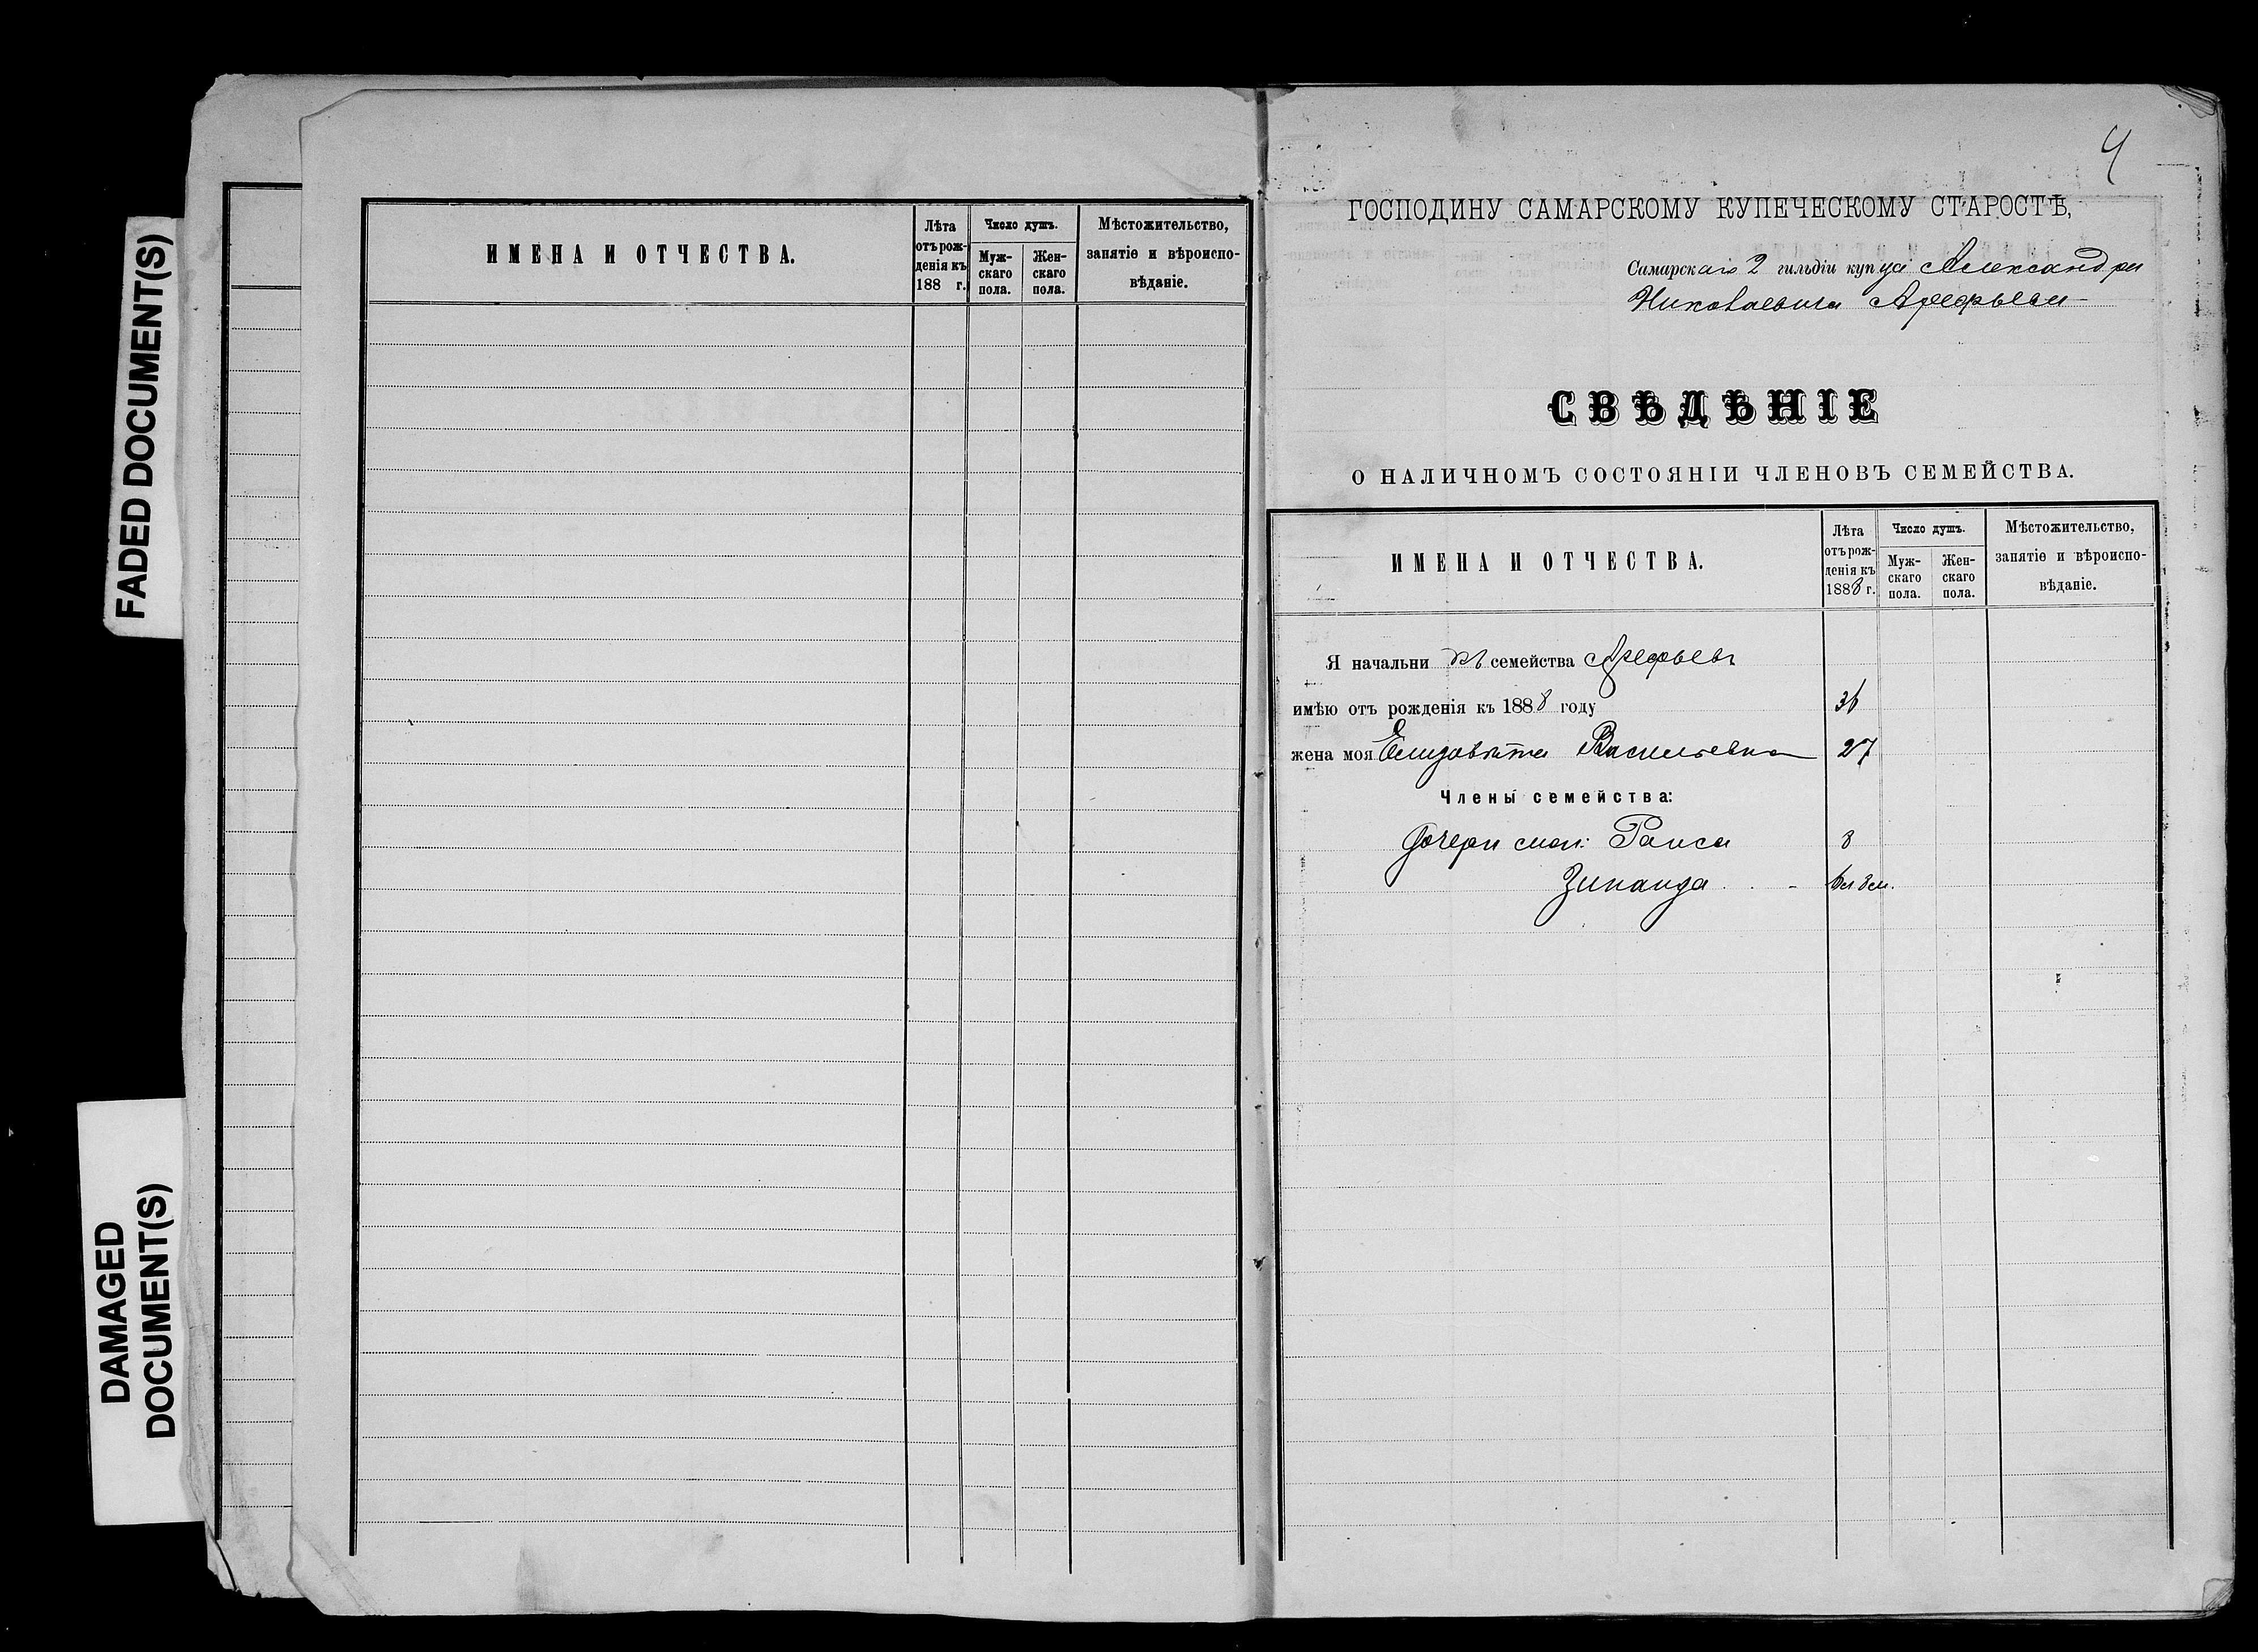 FADED DOCUMENT(S)
DAMAGED
DOCUMENT(S)
ИМЕНА И ОТЧЕСТВА.
Лѣта
отъ рож-
денія къ
188 г.
Число душъ.
Муж-
скаго
пола.
Жен-
скаго
пола.
Мѣстожительство,
занятіе и вѣроиспо-
вѣданіе.
4
ГОСПОДИНУ САМАРСКОМУ КУПЕЧЕСКОМУ СТАРОСТѢ,
Самарскаго 2 гильдіи купца Александра
Николаевича Арефьева
СВѢДѢНІЕ
О НАЛИЧНОМЪ СОСТОЯНІИ ЧЛЕНОВЪ СЕМЕЙСТВА.
ИМЕНА И ОТЧЕСТВА.
Лѣта
отъ рож-
денія къ
1888 г.
Число душъ.
Муж-
скаго
пола.
Жен-
скаго
пола.
Мѣстожительство,
занятіе и вѣроиспо-
вѣданіе.
Я начальникъ семейства Арефьевъ
имѣю отъ рожденія къ 1888 году 36
жена моя Елизавѣта Васильевна 27
Члены семейства:
Дочери Раиса 8
Зинаида